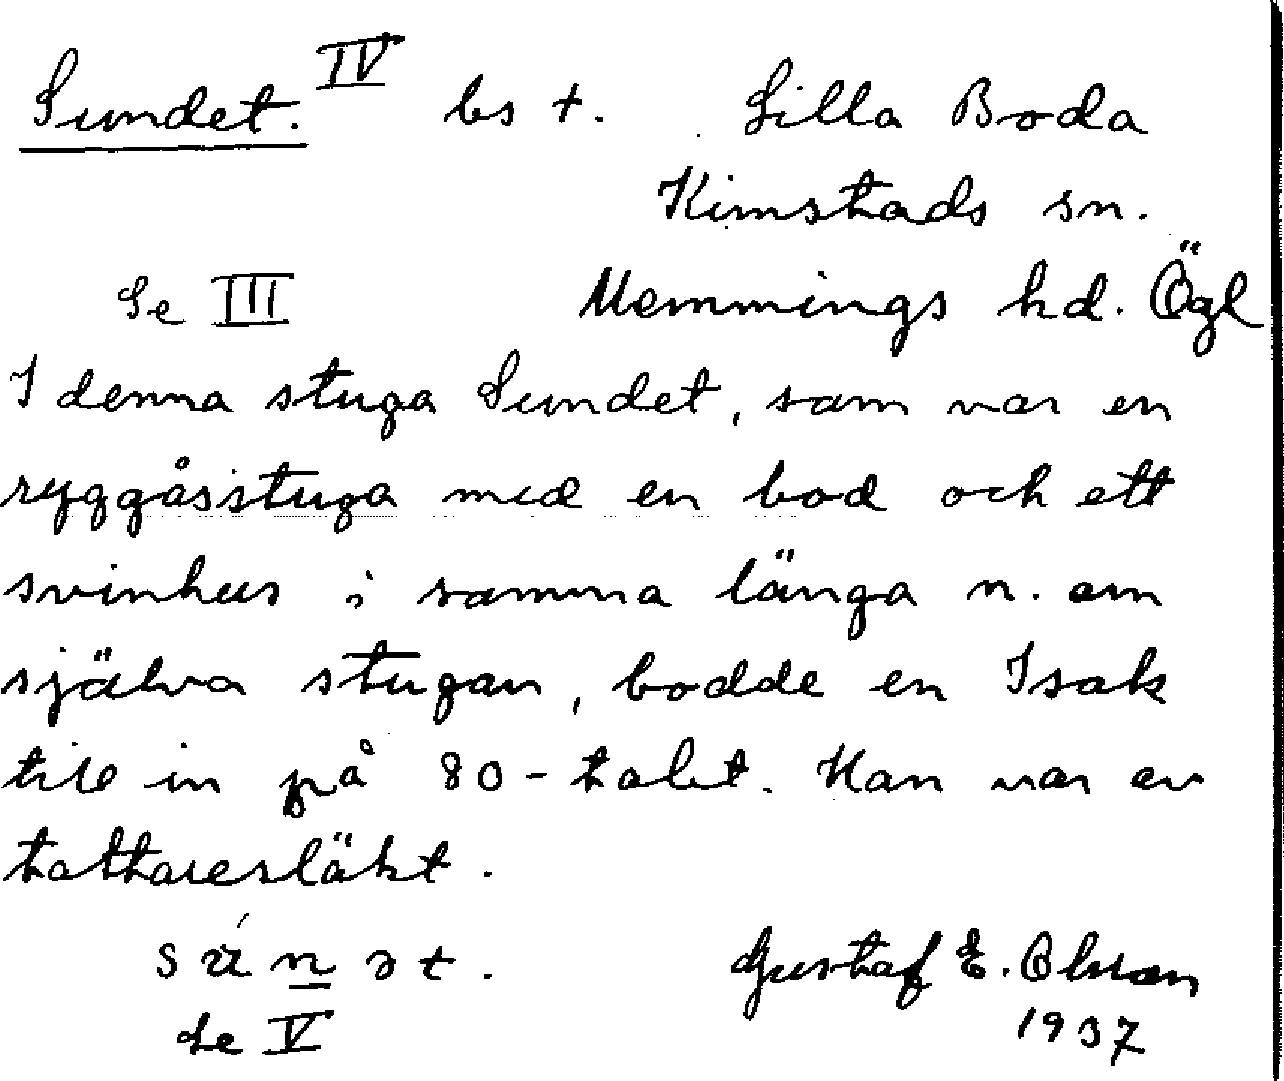 Sundet. IV bs +. Lilla Boda
Kimstads sn.
Se III Memmings hd. Ögl
I denna stuga Sundet, som var en
ryggåsstuga med en bod och ett
svinhus i samma länga n. om
själva stugan, bodde en Isak
till in på 80-talet. Han var av
tattaresläkt.
Gustaf E. Olsson
Se V 1937